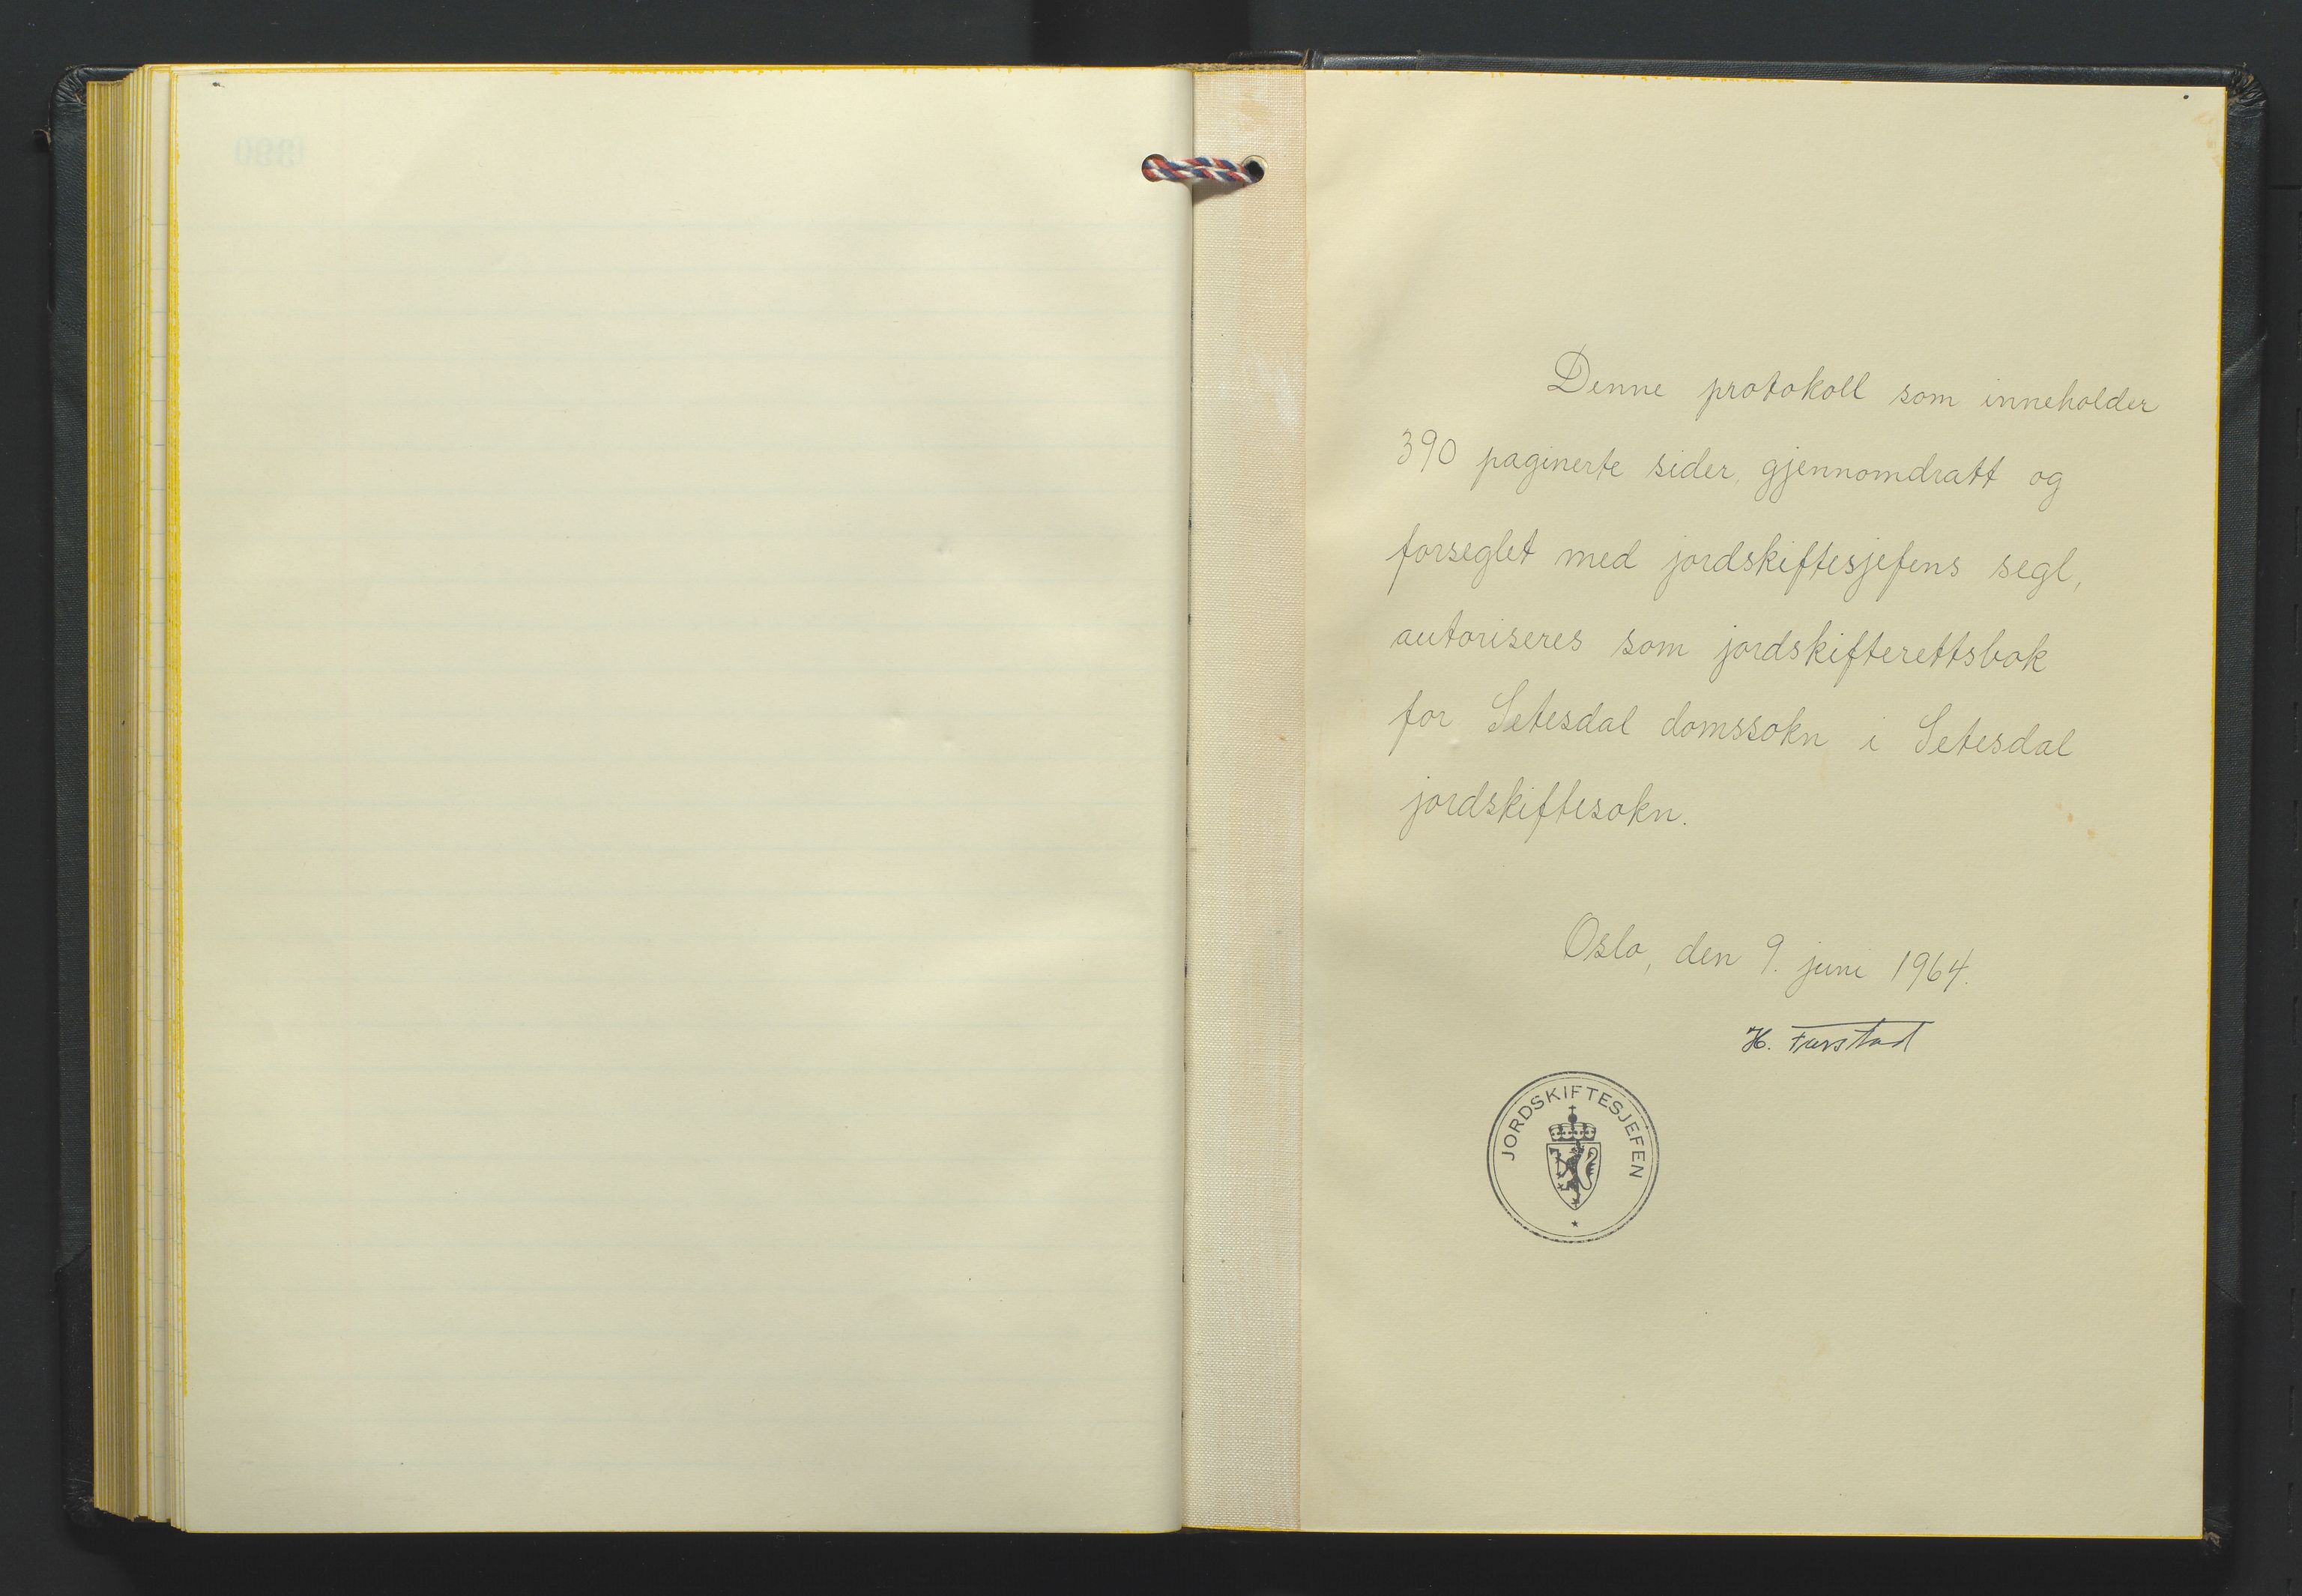 Denne protokoll som inneholder
390 paginerte sider, gjennomdratt og
forseglet med jordskiftesjefens segl,
autoriseres som jordskifterettsbok
for Setesdal domssokn i Setesdal
jordskiftesokn.
Oslo, den 9. juni 1964.
H.
JORDSKIFTESJEFEN